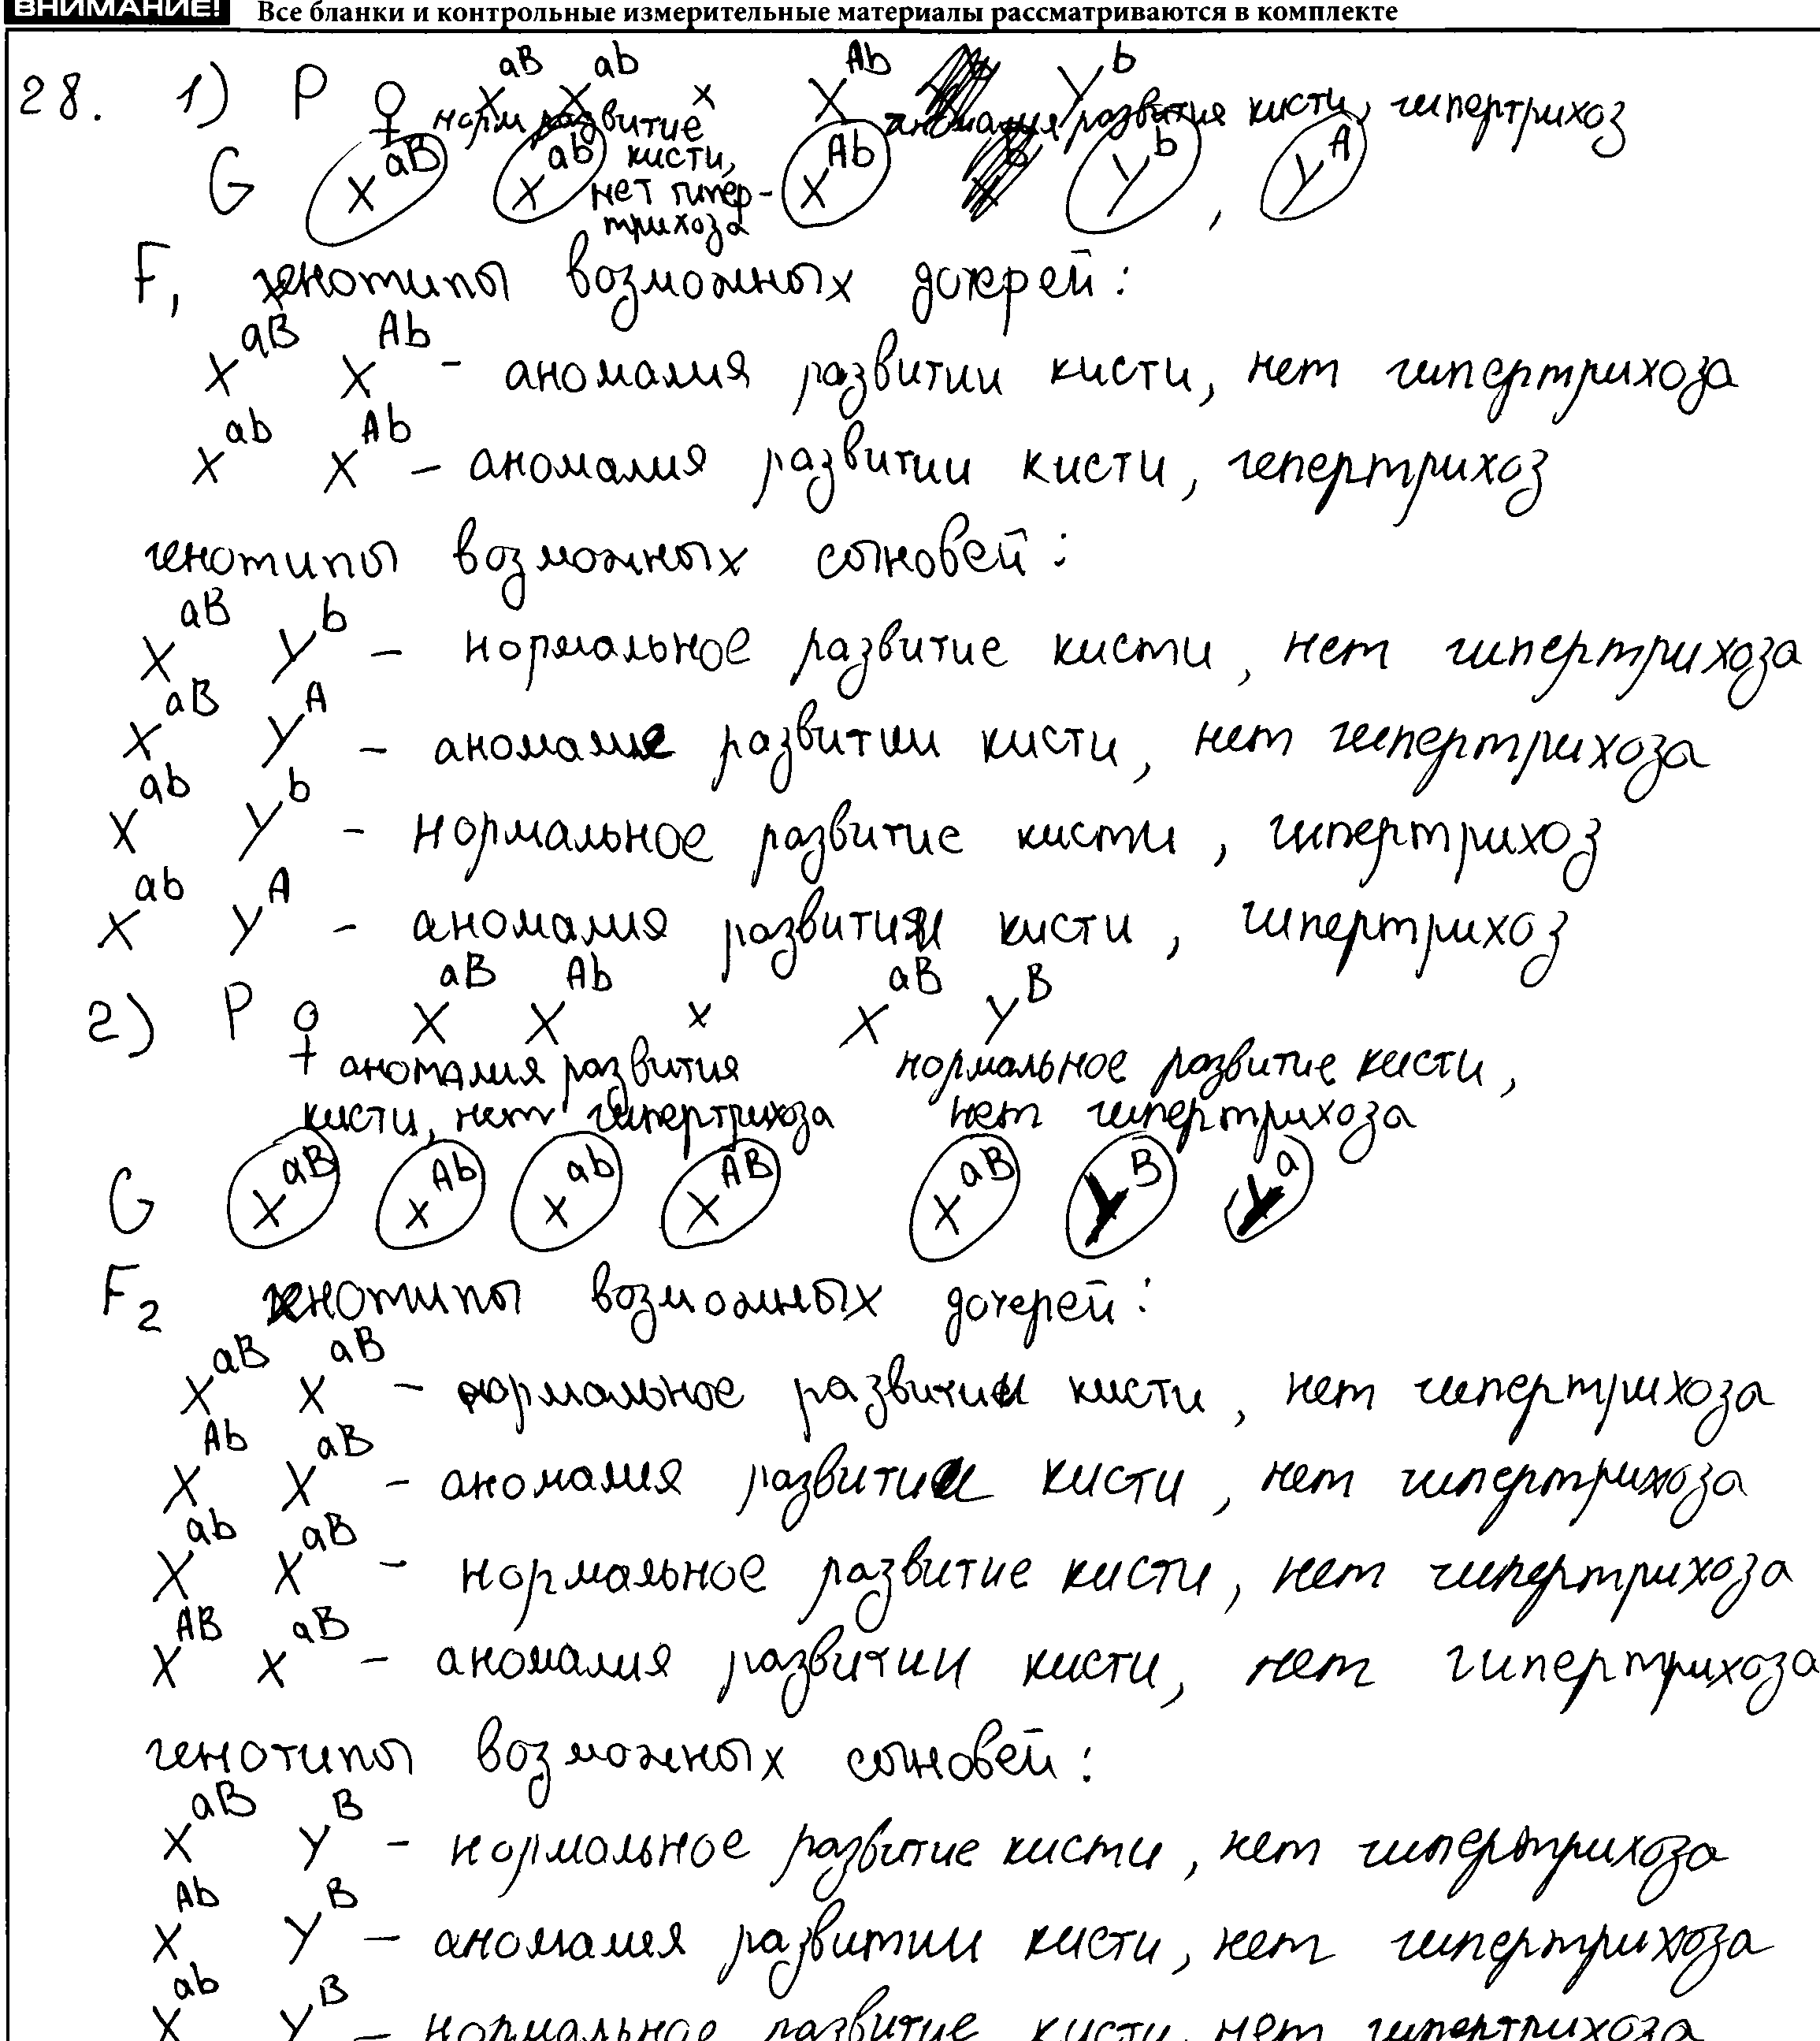 ВНИМАНИЕ! Все бланки и контрольные измерительные материалы рассматриваются в комплекте
28. 1) P ♀ X^aB X^ab x X^Ab Y^b
норм развитие кисти, нет гипер-трихоза аномалия развития кисти, гипертрихоз
G X^aB X^ab X^Ab Y^b, Y^A
F1 генотипы возможных дочерей:
X^aB X^Ab - аномалия развитии кисти, нет гипертрихоза
X^ab X^Ab - аномалия развитии кисти, гепертрихоз
генотипы возможных сыновей:
X^aB Y^b - нормальное развитие кисти, нет гипертрихоза
X^aB Y^A - аномалие развитии кисти, нет гипертрихоза
X^ab Y^b - нормальное развитие кисти, гипертрихоз
X^ab Y^A - аномалия развития кисти, гипертрихоз
2) P ♀ X^aB X^Ab x X^aB Y^B
аномалия развития нормальное развитие кисти,
кисти, нет гипертрихоза нет гипертрихоза
G X^aB X^Ab X^ab X^AB X^aB Y^B Y^a
F2 генотипы возможных дочерей:
X^aB X^aB - нормальное развитии кисти, нет гипертрихоза
X^Ab X^aB - аномалия развитии кисти, нет гипертрихоза
X^ab X^aB - нормальное развитие кисти, нет гипертрихоза
X^AB X^aB - аномалия развитии кисти, нет гипертрихоза
генотипы возможных сыновей:
X^aB Y^B - нормальное развитие кисти, нет гипертрихоза
X^Ab Y^B - аномалия развитии кисти, нет гипертрихоза
X^ab Y^B - нормальное развитие кисти, нет гипертрихоза